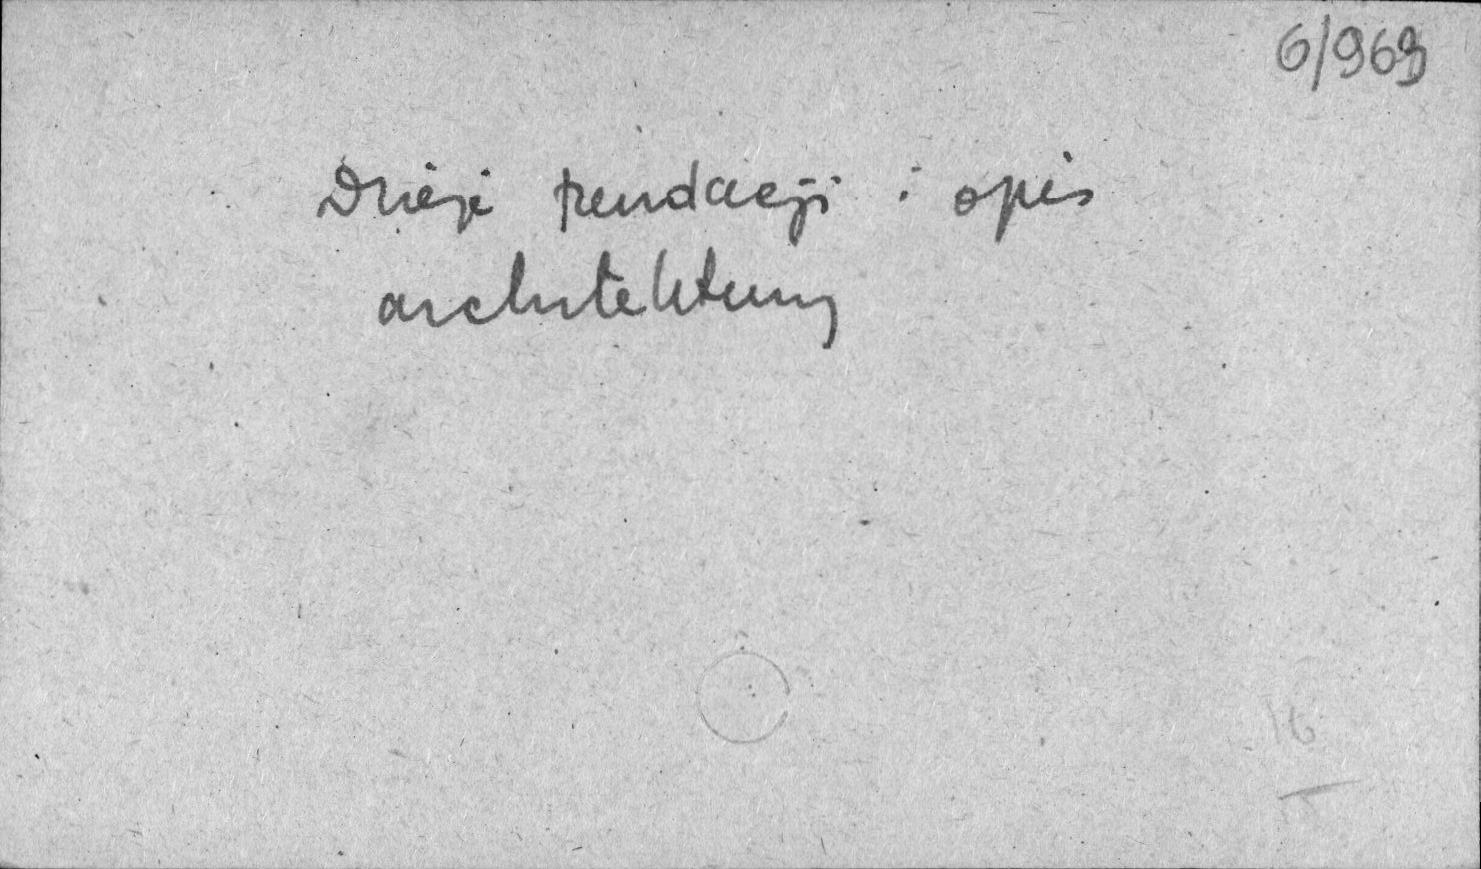 6/969
Dzieje fundacji i opis
architektury
16